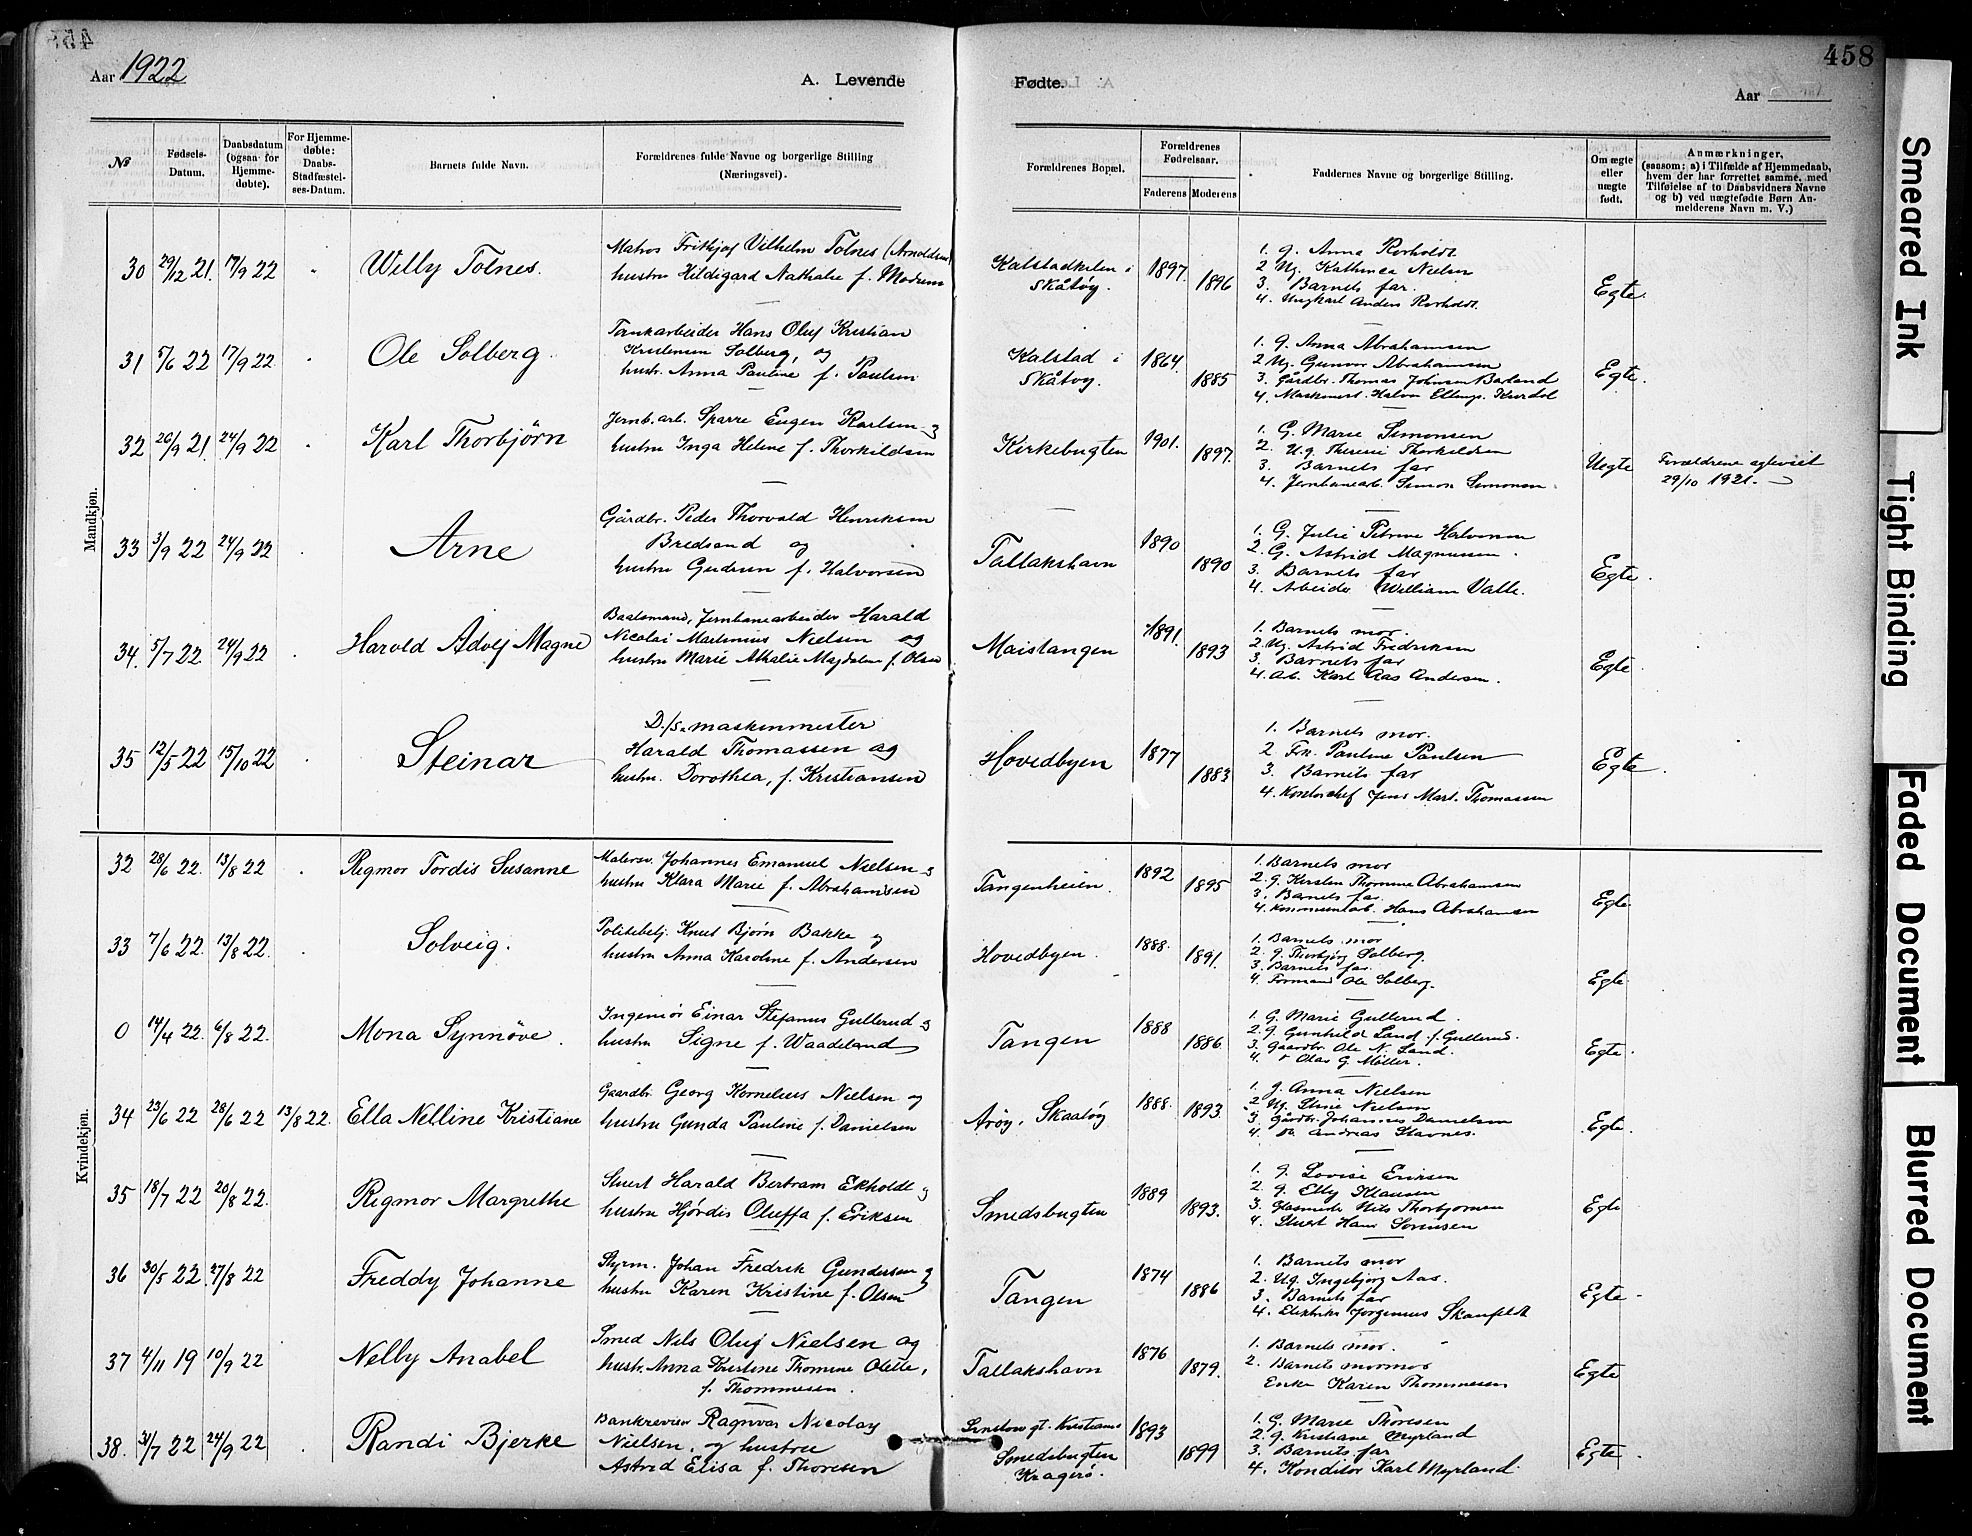 Aar 1922
A. Levende
Fødte.
458
Aar
№
Fødsels-Datum.
Daabsdatum (ogsaa for Hjemme-døbte).
For Hjemme-døbte: Daabs-Stadfæstel-ses-Datum.
Barnets fulde Navn.
Forældrenes fulde Navne og borgerlige Stilling (Næringsvei).
Forældrenes Bopæl.
Forældrenes Fødselsaar.
Faderens
Moderens
Faddernes Navne og borgerlige Stilling.
Om ægte eller uægte født.
Anmærkninger, (saasom: a) i Tilfælde af Hjemmedaab, hvem der har forrettet samme, med Tilføielse af to Daabsvidners Navne og b) ved uægtefødte Børn An-melderens Navn m. V.)
Mandkjøn.
30 29/12 21. 17/9 22 Willy Tolnes.
Matros Frithjof Vilhelm Tolnes (Arnoldsen)
hustru Hildigard Nathalie f. Modrum
Kalstadkilen i
Skåtøy.
1897. 1896
1. G. Anna Rorholdt
2 Ug. Kathinca Nielsen
3. Barnets far.
4. Ungkarl Anders Rorholdt.
Egte.
31 5/6 22 17/9 22 Ole Solberg
Tomtearbeider Hans Oluf Kristian
Kristensen Solberg, og
hustr. Anna Pauline f. Paulsen
Kalstad i
Skåtøy.
1864. 1885
1. G. Anna Abrahamsen
2 Ug. Gunvor Abrahamsen
3. Gårdbr. Thomas Johnsen Barland
4. Maskinist. Halvor Ellings. Kurdøl
Egte.
32 26/9 21. 24/9 22 Karl Thorbjørn
Jernb. arb. Sparre Eugen Karlsen og
hustru Inga Helene f. Thorkildsen
Kirkebugten
1901. 1897.
1. G. Marie Simonsen
2. Ug. Therese Thorkildsen
3. Barnets far
4. Jernbanearb. Simon Simonsen.
Uegte
Forældrene egteviet
29/10 1921.
33 3/9 22 24/9 22 Arne
Gårdbr. Peder Thorvald Henriksen
Bredsand og
hustru Gudrun f. Halvorsen
Tallakshavn
1890 1890
1. G. Julie Petrine Halvorsen
2. G. Astrid Magnussen.
3. Barnets far
4. Arbeider William Valle.
Egte.
34. 5/7 22 24/9 22 Harold Adolf Magne
Baatsmand, Jernbanearbeider Harald
Nicolai Martinius Nielsen og
hustru Marie Athalie Magdalene f. Olsen
Maistangen
1891. 1893
1. Barnets mor.
2. Ug. Astrid Fredriksen
3. Barnets far
4. Arb. Karl Aas Andersen.
Egte
35 12/5 22 15/10 22 Steinar
D./S. maskinmester
Harald Thomassen og
hustru. Dorothea, f. Kristiansen
Hovedbyen
1877 1883
1. Barnets mor.
2. Frk. Pauline Paulsen
3. Barnets far
4. Kontorchef Jens Mart. Thomassen
Egte.
Kvindekjøn.
32 28/6 22. 13/8 22 Rigmor Tordis Susanne
Malersv. Johannes Emanuel Nielsen og
hustru Klara Marie f. Abrahamsen
Tangenheien.
1892 1895
1. Barnets mor
2. G. Kirsten Thomine Abrahamsen
3. Barnets far
4. Kommunearb. Hans Abrahamsen
Egte.
33 7/6 22. 13/8 22. Solveig.
Politibetj. Knut Bjørn Bakke og
hustru Anna Karoline f. Andersen
Hovedbyen.
1888. 1891.
1. Barnets mor
2. G. Thorbjørg Solberg.
3. Barnets far.
4. Formand Ole Solberg.
Egte
0 14/4 22. 6/8 22. Mona Synnöve.
Ingeniør Einar Stefanus Gullerud og
hustru Signe f. Waadeland
Tangen
1888 1886
1. G. Marie Gullerud.
2. G. Gunhild Land f. Gullerud.
3. Gaardbr. Ole N. Land.
4. " Olav G. Möller.
Egte.
34 23/6 22 28/6 22 13/8 22. Ella Nelline Kristiane
Gaardbr. Georg Kornelius Nielsen og
hustru Gunda Pauline f. Danielsen
Arøy, Skaatøy
1888. 1893.
1. G. Anna Nielsen
2. Ug. Nielsen
3. Gårdbr. Johannes Danielsen
4. do. Andreas Stavnes.
Egte.
35 18/7 22 20/8 22. Rigmor Margrethe
Stuert Harald Bertram Ekholdt og
hustru Hjørdis Oluffa f. Eriksen
Smedsbugten
1889 1893.
1. G. Lovise Eriksen
2. G. Elly Klausen
3. Glasmester Nils Thorbjørnsen
4. Stuert Hans Sørensen
Egte
36 30/5 22. 27/8 22 Freddy Johanne
Styrm. Johan Fredrik Gundersen og
hustru Karen Kristine f. Olsen
Tangen
1874 1886
1. Barnets mor
2. Ug. Ingebjørg Aas.
3. Barnets far
4. Elektriker Jørgenius Skarfeldt
Egte
37 4/11 19 10/9 22 Nelly Anabel
Smed Nils Oluf Nielsen og
hustr. Anna Kristine Thomine Olette,
f. Thommesen.
Tallakshavn
1876 1879.
1. Barnets mor.
2. Barnets mormor
Enke Karen Thommesen
Egte
38. 31/7 22 24/9 22 Randi Bjerke
Bankrevisor Ragnvar Nicolay
Nielsen, og hustru
Astrid Elisa f. Thoresen
gt. Kristiania
Smedsbugten
Kragerø.
1893 1899
1. G. Marie Thoresen
2. G. Kristiane Myrland
3. Barnets far
4. Konditor Karl Myrland.
Egte.
Smeared Ink
Tight Binding
Faded Document
Blurred Document